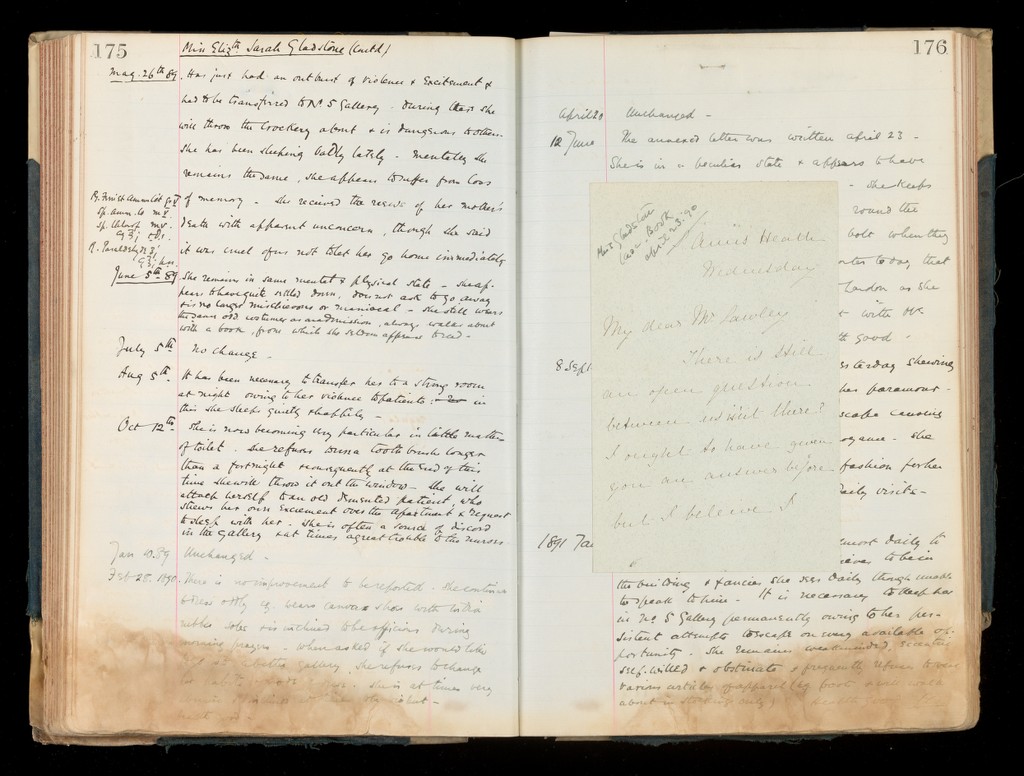 175
Miss Elizth Sarah Gladstone (Contd)
May 26th 89. Has just had an outburst of violence & excitement &
had to be transferred to No 5 Gallery. During these she
will throw the crockery about & is dangerous to others.
She has been sleeping badly lately - mentally she
remains the same, she appears to suffer from loss
of memory - She received the news of her mother's
death with apparent unconcern, though she said
it was cruel of us not to let her go home immediately
June 5th 89 She remains in same mental & physical state - she ap-
pears to have quite settled down, does not ask to go away
& is no longer mischievous or maniacal - She still wears
the same old costume as on admission, always walks about
with a book, from which she seldom appears to read -
July 5th No change -
Aug 5th. It has been necessary to transfer her to a strong room
at night owing to her violence to patients: in
this she sleeps quietly & happily -
Oct 12th She is now becoming very particular in little matters
of toilet. She refuses to use a tooth brush longer
than a fortnight & consequently at the end of this
time she will throw it out the window - She will
attach herself to an old demented patient, who
strews her own excrement over the apartment, & request
to sleep with her. She is often a source of discord
in the gallery & at times a great trouble to the nurses
Jan 10.89 Unchanged -
Feb 28. 1890. There is no improvement to be reported. She continues
to dress oddly eg. wears canvas shoes with India
rubber soles & is inclined to be officious during
morning prayers - When asked if she would like
better gallery she refuses to change
She is at times very
176
April 20 Unchanged -
12 June The annexed letter was written April 23 -
She is in a peculiar state & appears to have
- She keeps
round the
bolt when they
today that
London as she
& with
good -
8 Sept
yesterday shewing
her paramour -
escape causing
She
fashion for her
daily visits -
1891 Jan
almost daily to
to be in
the building & fancies she sees daily though unable
to speak to him - It is necessary to keep her
in No 5 Gallery permanently owing to her per-
sistent attempts to escape on every available op-
portunity - She remains weakminded, eccentric
self-willed & obstinate & frequently refuses to wear
various articles of apparel (eg boots & will walk
about in stockings only)
Miss Gladstone
Case Book
April 23. '90
Ainiis Heath
Wednesday
My dear Mr Lawley
There is still
an open question
between us isn't there?
I ought to have given
you an answer before
but I believe I